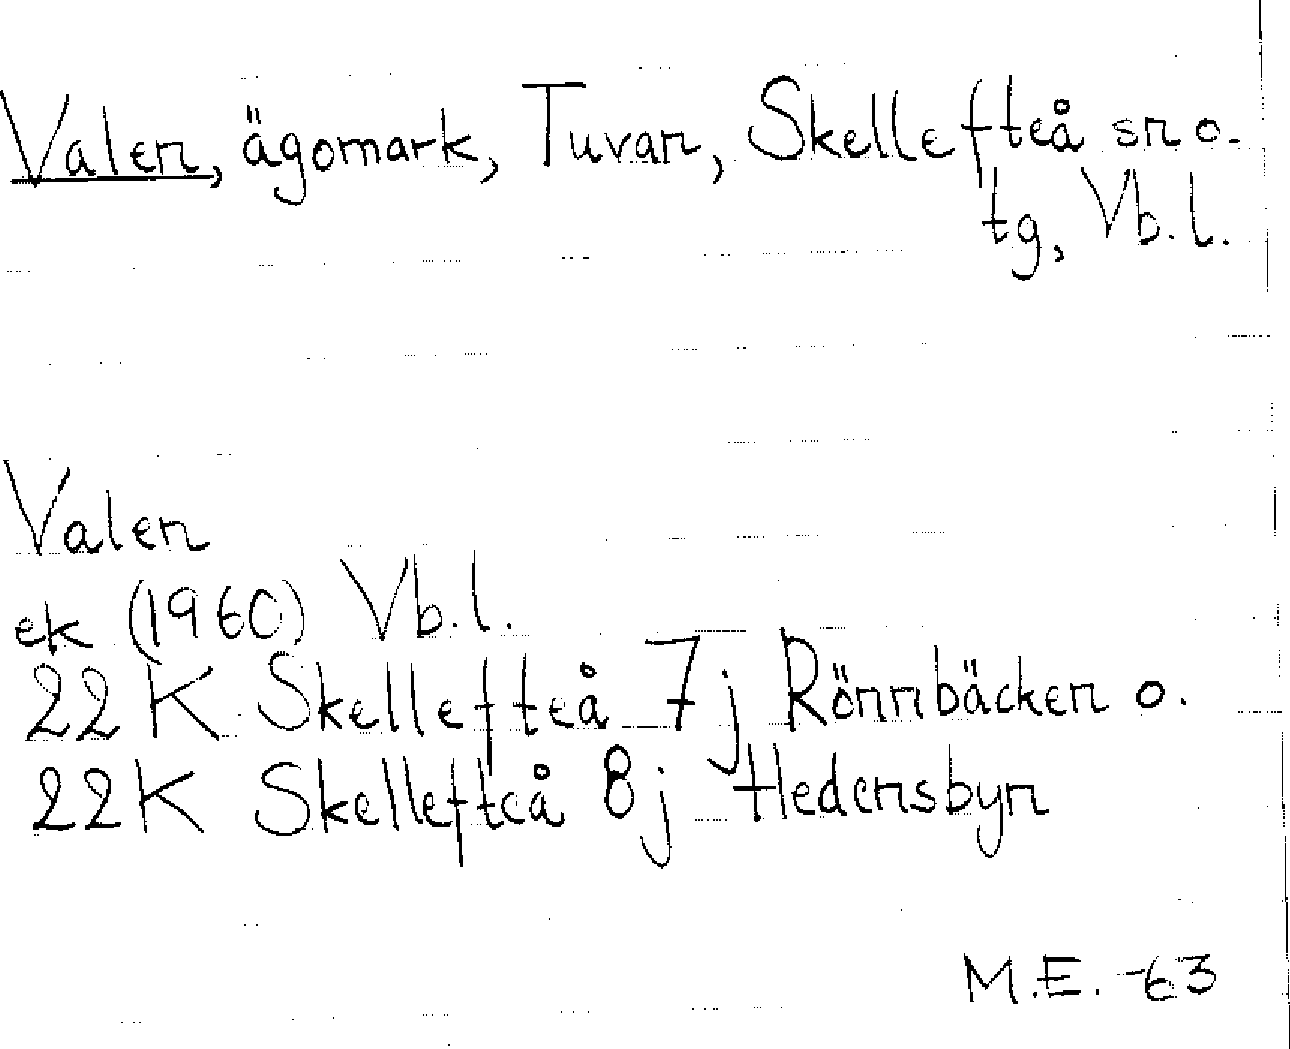 Valen, ägomark, Tuvan, Skellefteå sn o.
tg, Vb. l.
Valen
ek (1960) Vb. l.
22 K Skellefteå 7 j Rönnbäcken o.
22K Skellefteå 8j Hedensbyn
M.E. -63